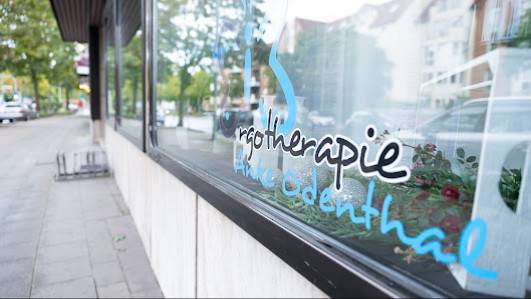 rgotherapie
Anke Odenthal